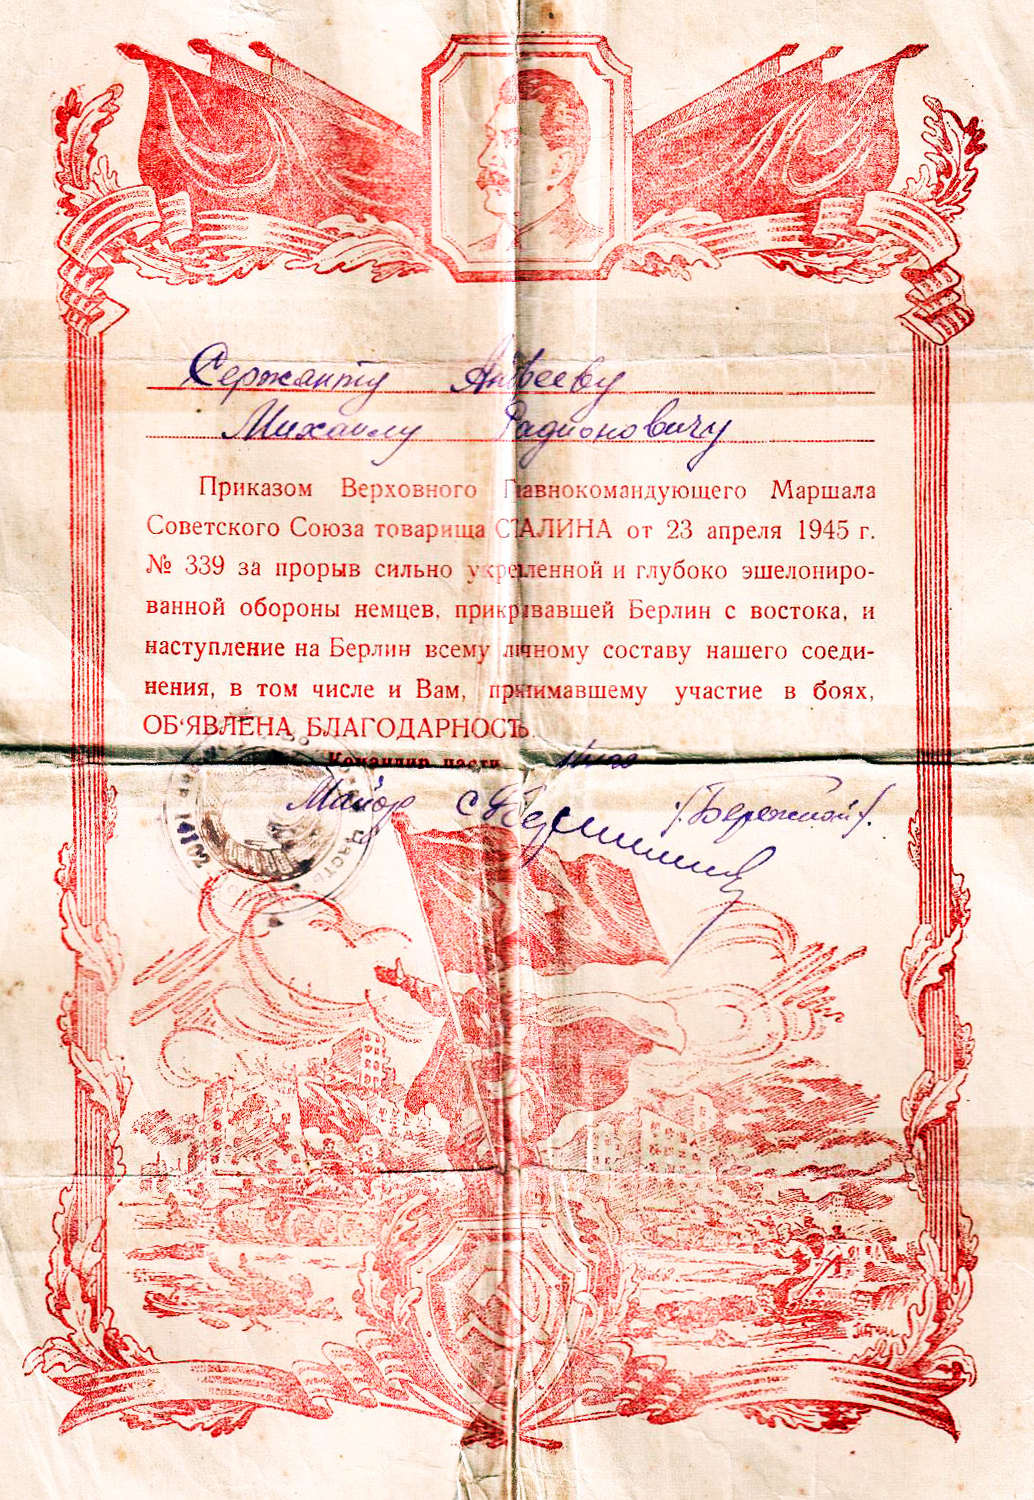 Сержанту Авдееву
Михаилу Радионовичу
Приказом Верховного Главнокомандующего Маршала
Советского Союза товарища СТАЛИНА от 23 апреля 1945 г.
№ 339 за прорыв сильно укрепленной и глубоко эшелониро-
ванной обороны немцев, прикрывавшей Берлин с востока, и
наступление на Берлин всему личному составу нашего соеди-
нения, в том числе и Вам, принимавшему участие в боях,
ОБ‘ЯВЛЕНА БЛАГОДАРНОСТЬ.
Командир части
Майор /Бережной/.